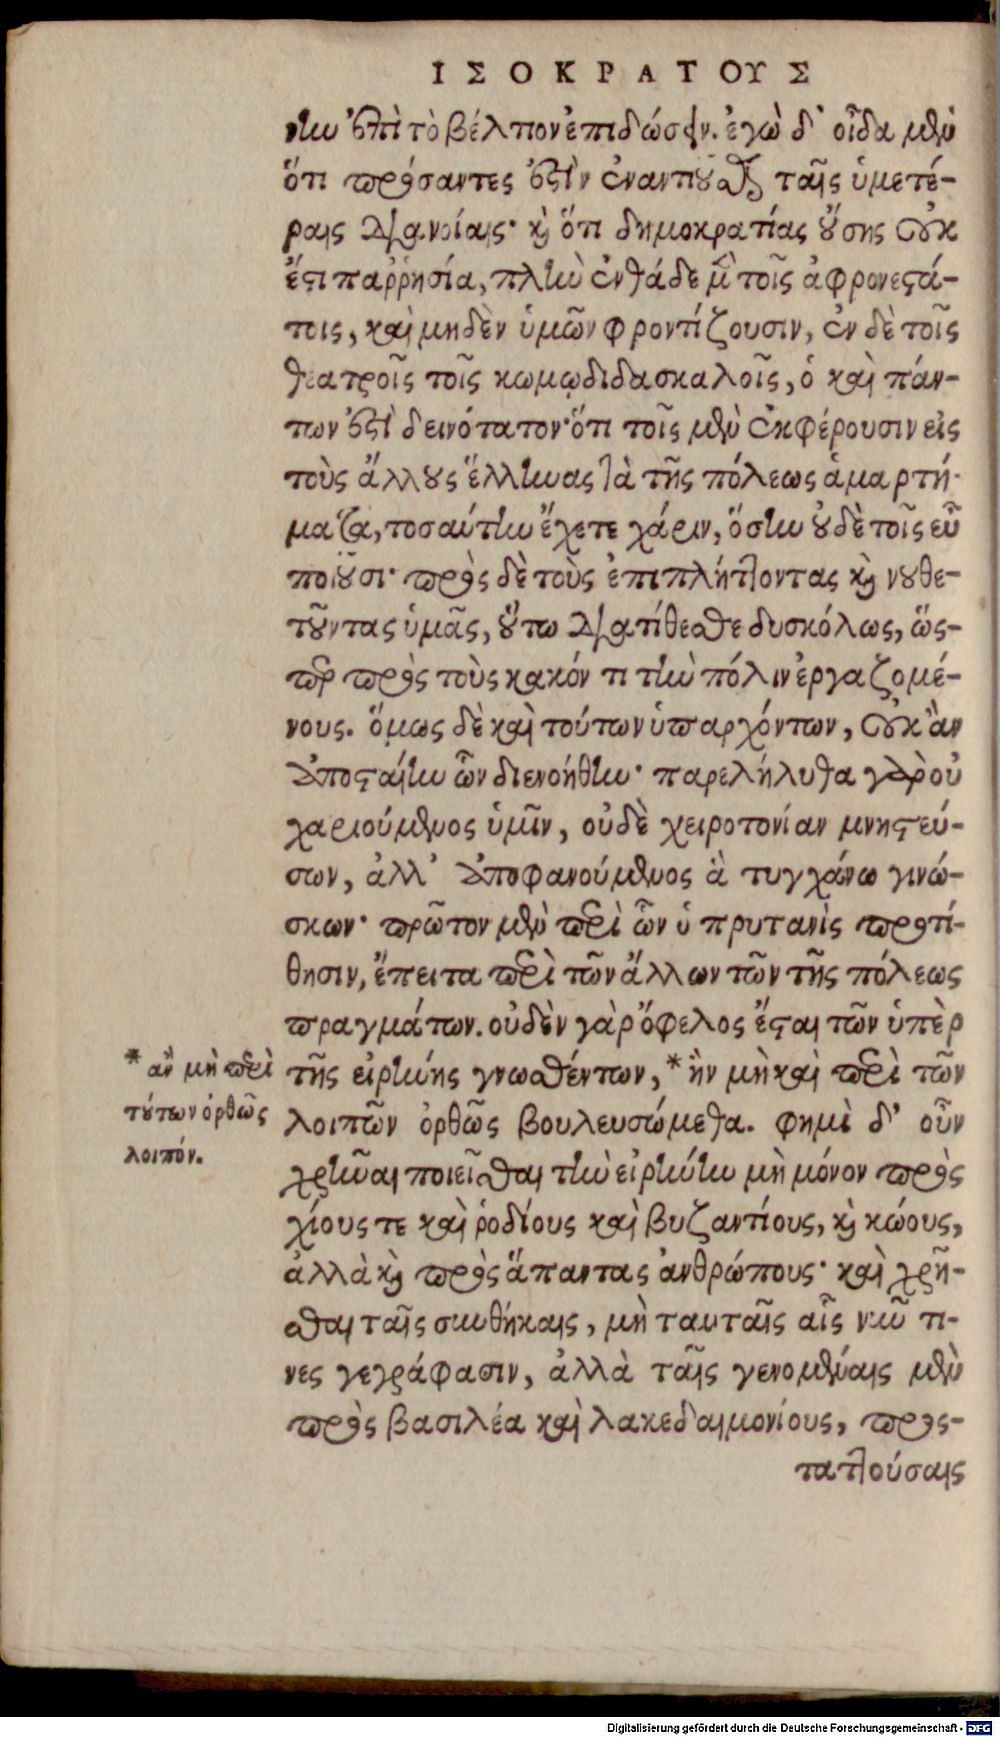 ΙΣΟΚΡΑΤΟΥΣ
την ἐπὶ τὸ βέλτιον ἐπιδώσειν. ἐγὼ δ᾽ οἶδα μὲν
ὅτι πρόσαντες ἐστὶν ἐναντιοῦσθαι ταῖς ὑμετέ-
ραις διανοίαις· καὶ ὅτι δημοκρατίας οὔσης οὐκ
ἔστι παῤῥησία, πλὴν ἐνθάδε μὲν τοῖς ἀφρονεστά-
τοις, καὶ μηδὲν ὑμῶν φροντίζουσιν, ἐν δὲ τοῖς
θεατροῖς τοῖς κωμῳδιδασκαλοῖς, ὁ καὶ πάν-
των ἐστὶ δεινότατον· ὅτι τοῖς μὲν ἐκφέρουσιν εἰς
τοὺς ἄλλους ἕλληνας τὰ τῆς πόλεως ἁμαρτή-
ματα, τοσαύτην ἔχετε χάριν, ὅσην οὐδὲ τοῖς εὖ
ποιοῦσι· πρὸς δὲ τοὺς ἐπιπλήττοντας καὶ νουθε-
τοῦντας ὑμᾶς, οὕτω διατίθεσθε δυσκόλως, ὥς-
περ πρὸς τοὺς κακόν τι τὴν πόλιν ἐργαζομέ-
νους. ὅμως δὲ καὶ τούτων ὑπαρχόντων, οὐκ ἂν
ἀποσταίην ὧν διενοήθην· παρελήλυθα γὰρ οὐ
χαριούμενος ὑμῖν, οὐδὲ χειροτονίαν μνηστεύ-
σων, ἀλλ᾽ ἀποφανούμενος ἃ τυγχάνω γινώ-
σκων· πρῶτον μὲν περὶ ὧν ὁ πρυτανὶς προτί-
θησιν, ἔπειτα περὶ τῶν ἄλλων τῶν τῆς πόλεως
πραγμάτων. οὐδὲν γὰρ ὄφελος ἔσται τῶν ὑπὲρ
τῆς εἰρήνης γνωσθέντων, * ἢν μὴ καὶ περὶ τῶν
λοιπῶν ὀρθῶς βουλευσώμεθα. φημὶ δ᾽ οὖν
χρῆναι ποιεῖσθαι τὴν εἰρήνην μὴ μόνον πρὸς
χίους τε καὶ ῥοδίους καὶ βυζαντίους, καὶ κώους,
ἀλλὰ καὶ πρὸς ἅπαντας ἀνθρώπους· καὶ χρῆ-
σθαι ταῖς συνθήκαις, μὴ ταυταῖς αἷς νῦν τι-
νες γεγράφασιν, ἀλλὰ ταῖς γενομέναις μὲν
πρὸς βασιλέα καὶ λακεδαιμονίους, προς-
ταττούσαις
* ἂν μὴ περὶ
τούτων ὀρθῶς
λοιπόν.
Digitalisierung gefördert durch die Deutsche Forschungsgemeinschaft - DFG